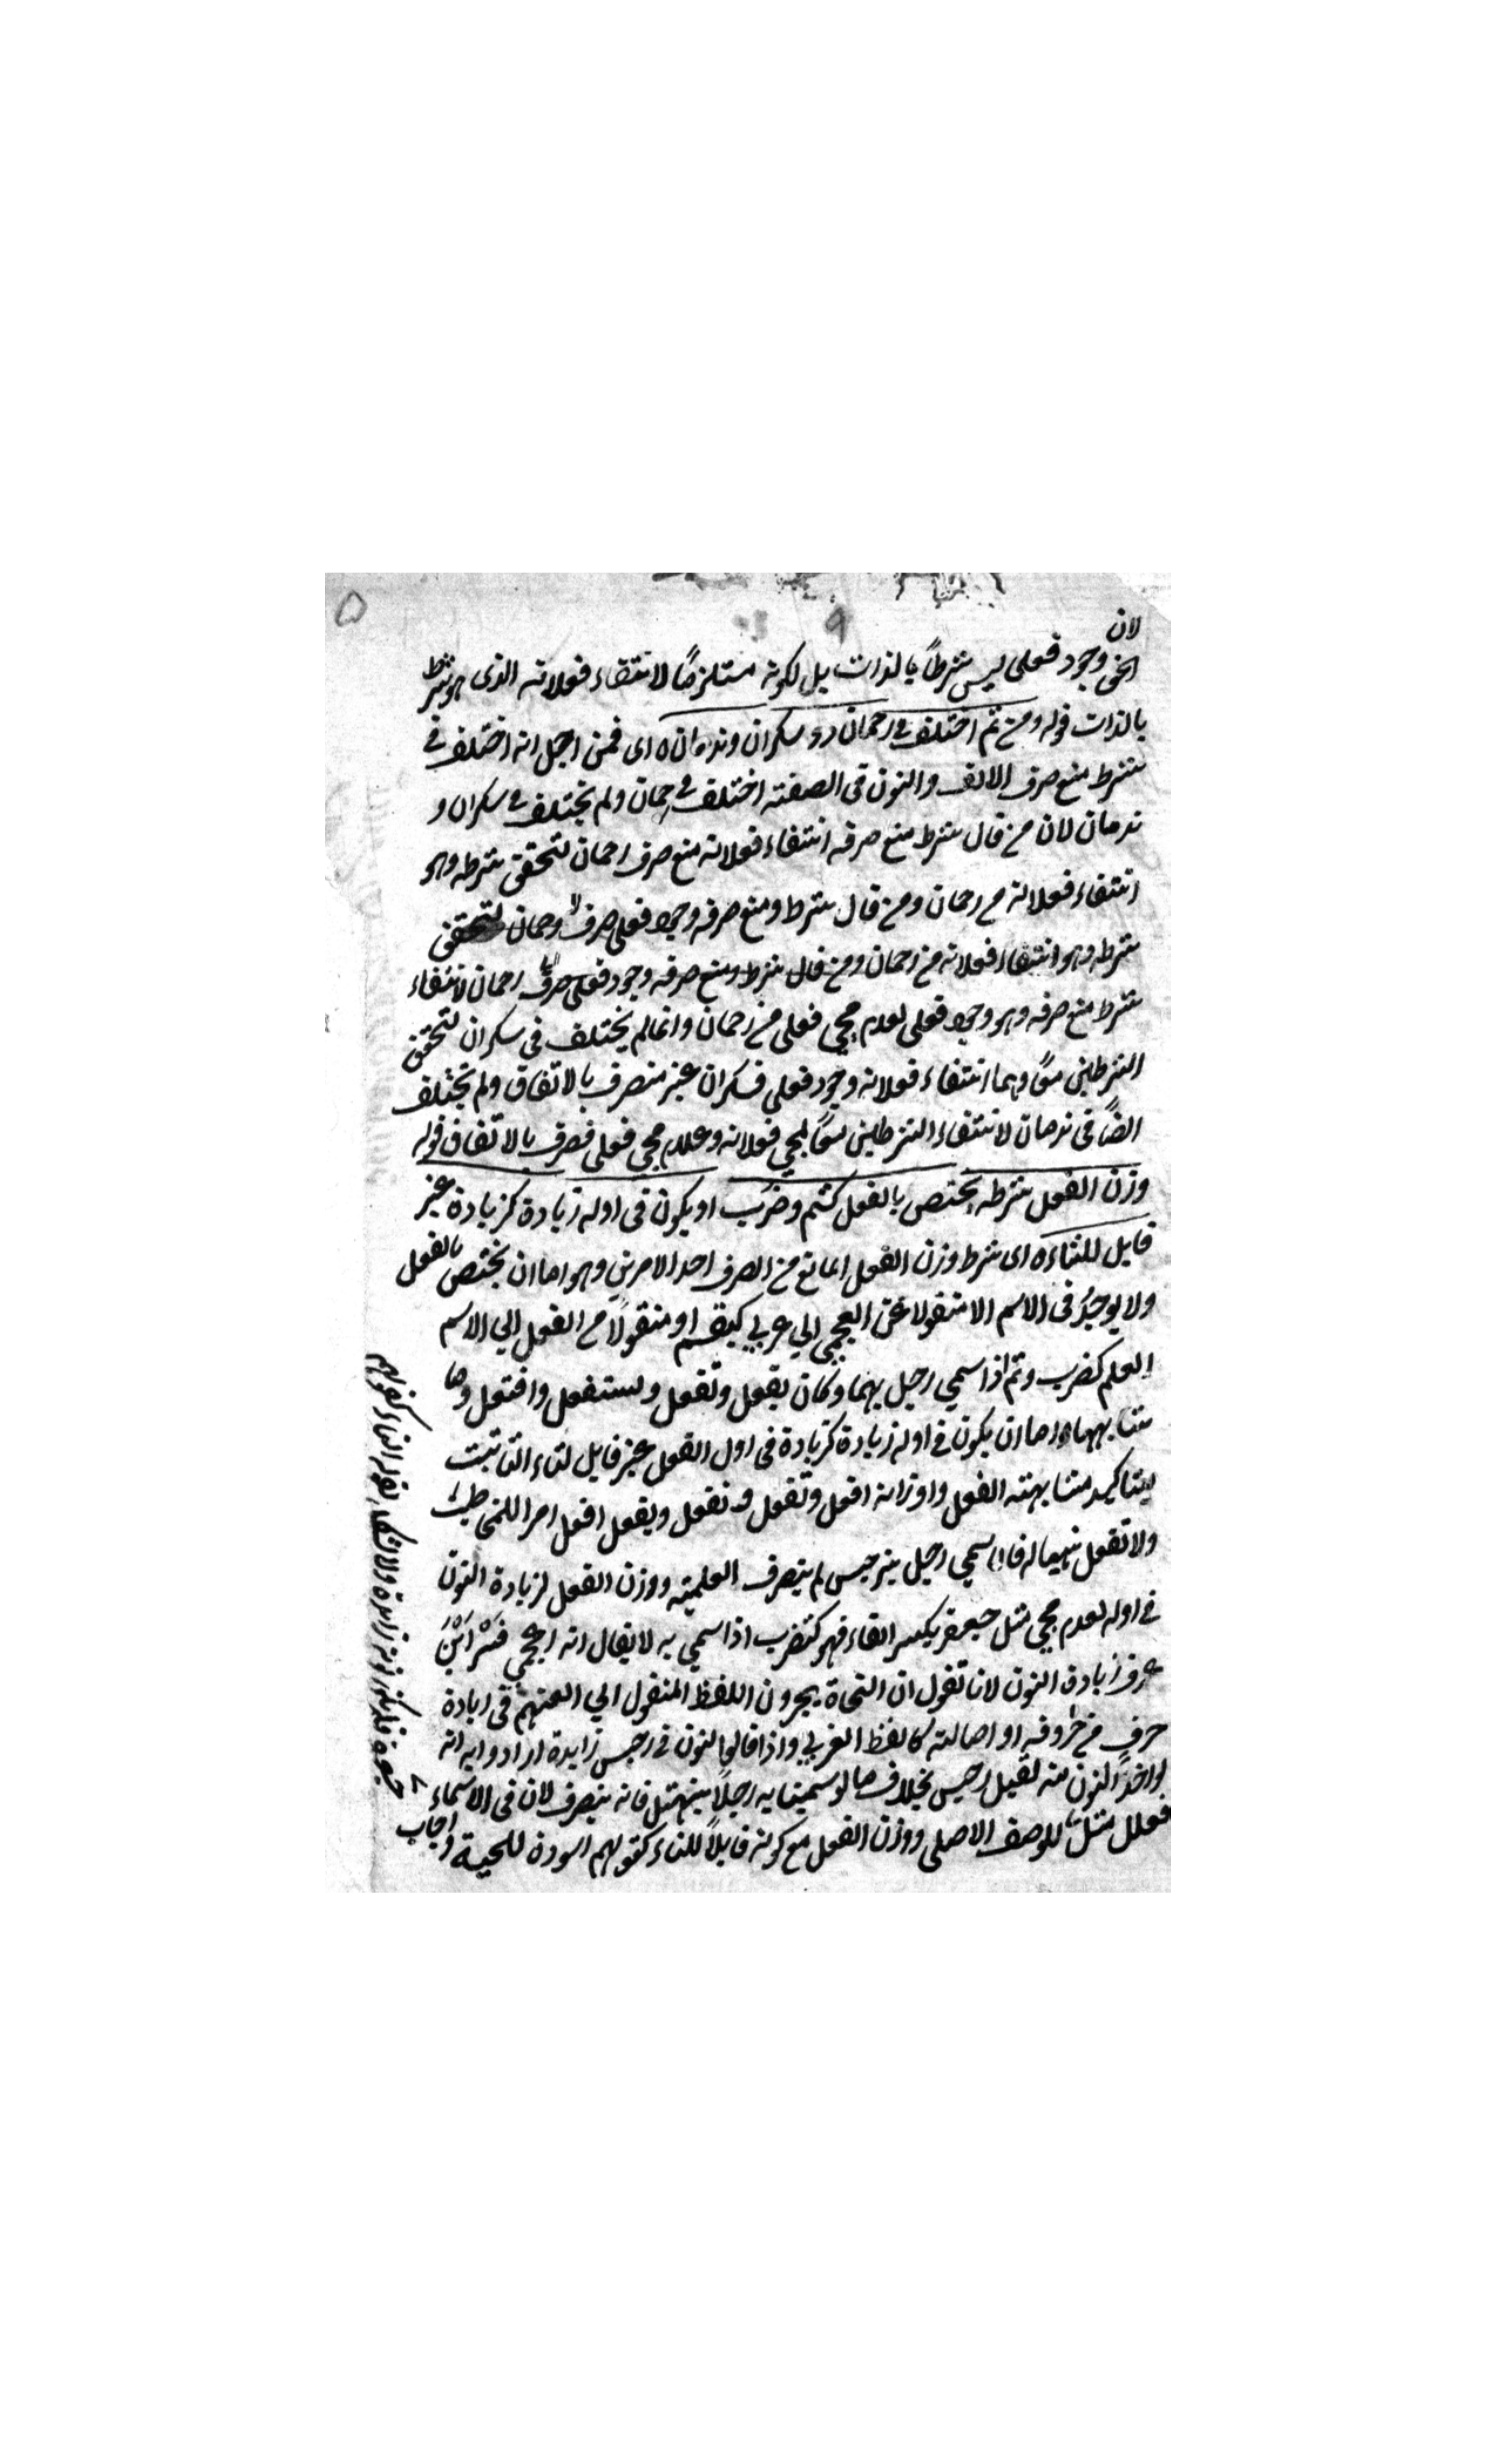 لان
الحق وجود فعلى ليس شرطاً بالذات بل لكونه مستلزمًا لانتفاء فعلانة الذى هو شرط
بالذات قوله ومن ثم اختلف في رحمان دون سكران وندمان ه اى فمن اجل انه اختلف في
شرط منع صرف الالف والنون فى الصفة اختلف في رحمان ولم يختلف في سكران و
ندمان لان من قال شرط منع صرفه انتفاء فعلانة منع صرف رحمان لتحقق شرطه وهو
انتفاء فعلانة من رحمان ومن قال شرط ومنع صرفه وجود فعلى صرف رحمان لتحقق
شرطه وهو انتفاء فعلانة من رحمان ومن قال شرط ومنع صرفه وجود فعلى صرف رحمان لانتفاء
شرط منع صرفه وهو وجود فعلى لعدم مجي فعلى من رحمان وانما لم يختلف فى سكران لتحقق
الشرطين معًا وهما انتفاء فعلانة وجود فعلى فسكران غير منصرف بالاتفاق ولم يختلف
ايضًا فى ندمان لانتفاء الشرطين معًا لمجي فعلانة وعدم مجي فعلى فصرف بالاتفاق قوله
وزن الفعل شرطه يختص بالفعل كشمر وضرب او يكون فى اوله زيادة كزيادة غير
قابل للتاء ه اى شرط وزن الفعل المانع من الصرف احد الامرين وهو اما ان يختص بالفعل
ولا يوجد فى الاسم الا منقولا عن العجمي الي عربي كبقم او منقولًا من الفعل الي الاسم
العلم كضرب وشمر اذا سمي رجل بهما وكان يفعل وتفعل ويستفعل وافتعل وما
شابههما واما ان يكون في اوله زيادة كزيادة فى اول الفعل غير قابل لتاء التانيث
ليتاكيد مشابهته الفعل واوزانه افعل وتفعل ونفعل ويفعل افعل امرا للمخاطب
ولا تفعل نهيا له فاذا سمي رجل بنرجس لم ينصرف العلمية ووزن الفعل لزيادة النون
في اوله لعدم مجي مثل جعفر بكسر الفاء فهو كنضرب اذا سمي به لا يقال انه اعجمي فمن اين
عرف زيادة النون لانا نقول ان النحاة يجرون اللفظ المنقول الي العتهم فى زيادة
حرف من حروفه او اصالته كالفظ العربي واذا قالوا النون في نرجس زايدة ارادوا به انه
لو اخذ النون منه لقيل رجس بخلاف ما لو سمينا به رجلًا بنهشل فانه ينصرف لان فى الاسماء
فعلل مثل للوصف الاصلى ووزن الفعل مع كونه قابلًا للتاء كقولهم اسودة للحية واجاب